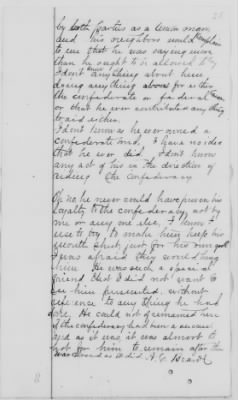 by both parties as a Union man
and his neighbors would
to me that he was saying more
than he ought to is allowed to
I dont know anything about him
doing anything above for either
the confederate or Federal
or that he ever contributed anything
to aid either.
I dont know as he ever owned a
confederate bond. I have no idea
that he ever did. I dont know
any act of his in the direction of
aiding the Confederacy
Oh no he never could have proven his
loyalty to the confederacy, not by
me or any one else. I know I
use to try to make him keep his
mouth shut just for his own good
I was afraid they would hang
him. He was such a special
friend that I did not want to
see him persecuted without
reference to any thing he had
done. He could not of remained here
if the confederacy had been a success
and as it was, it was almost to
hot for him to remain after the
was as it did. A. C.
8